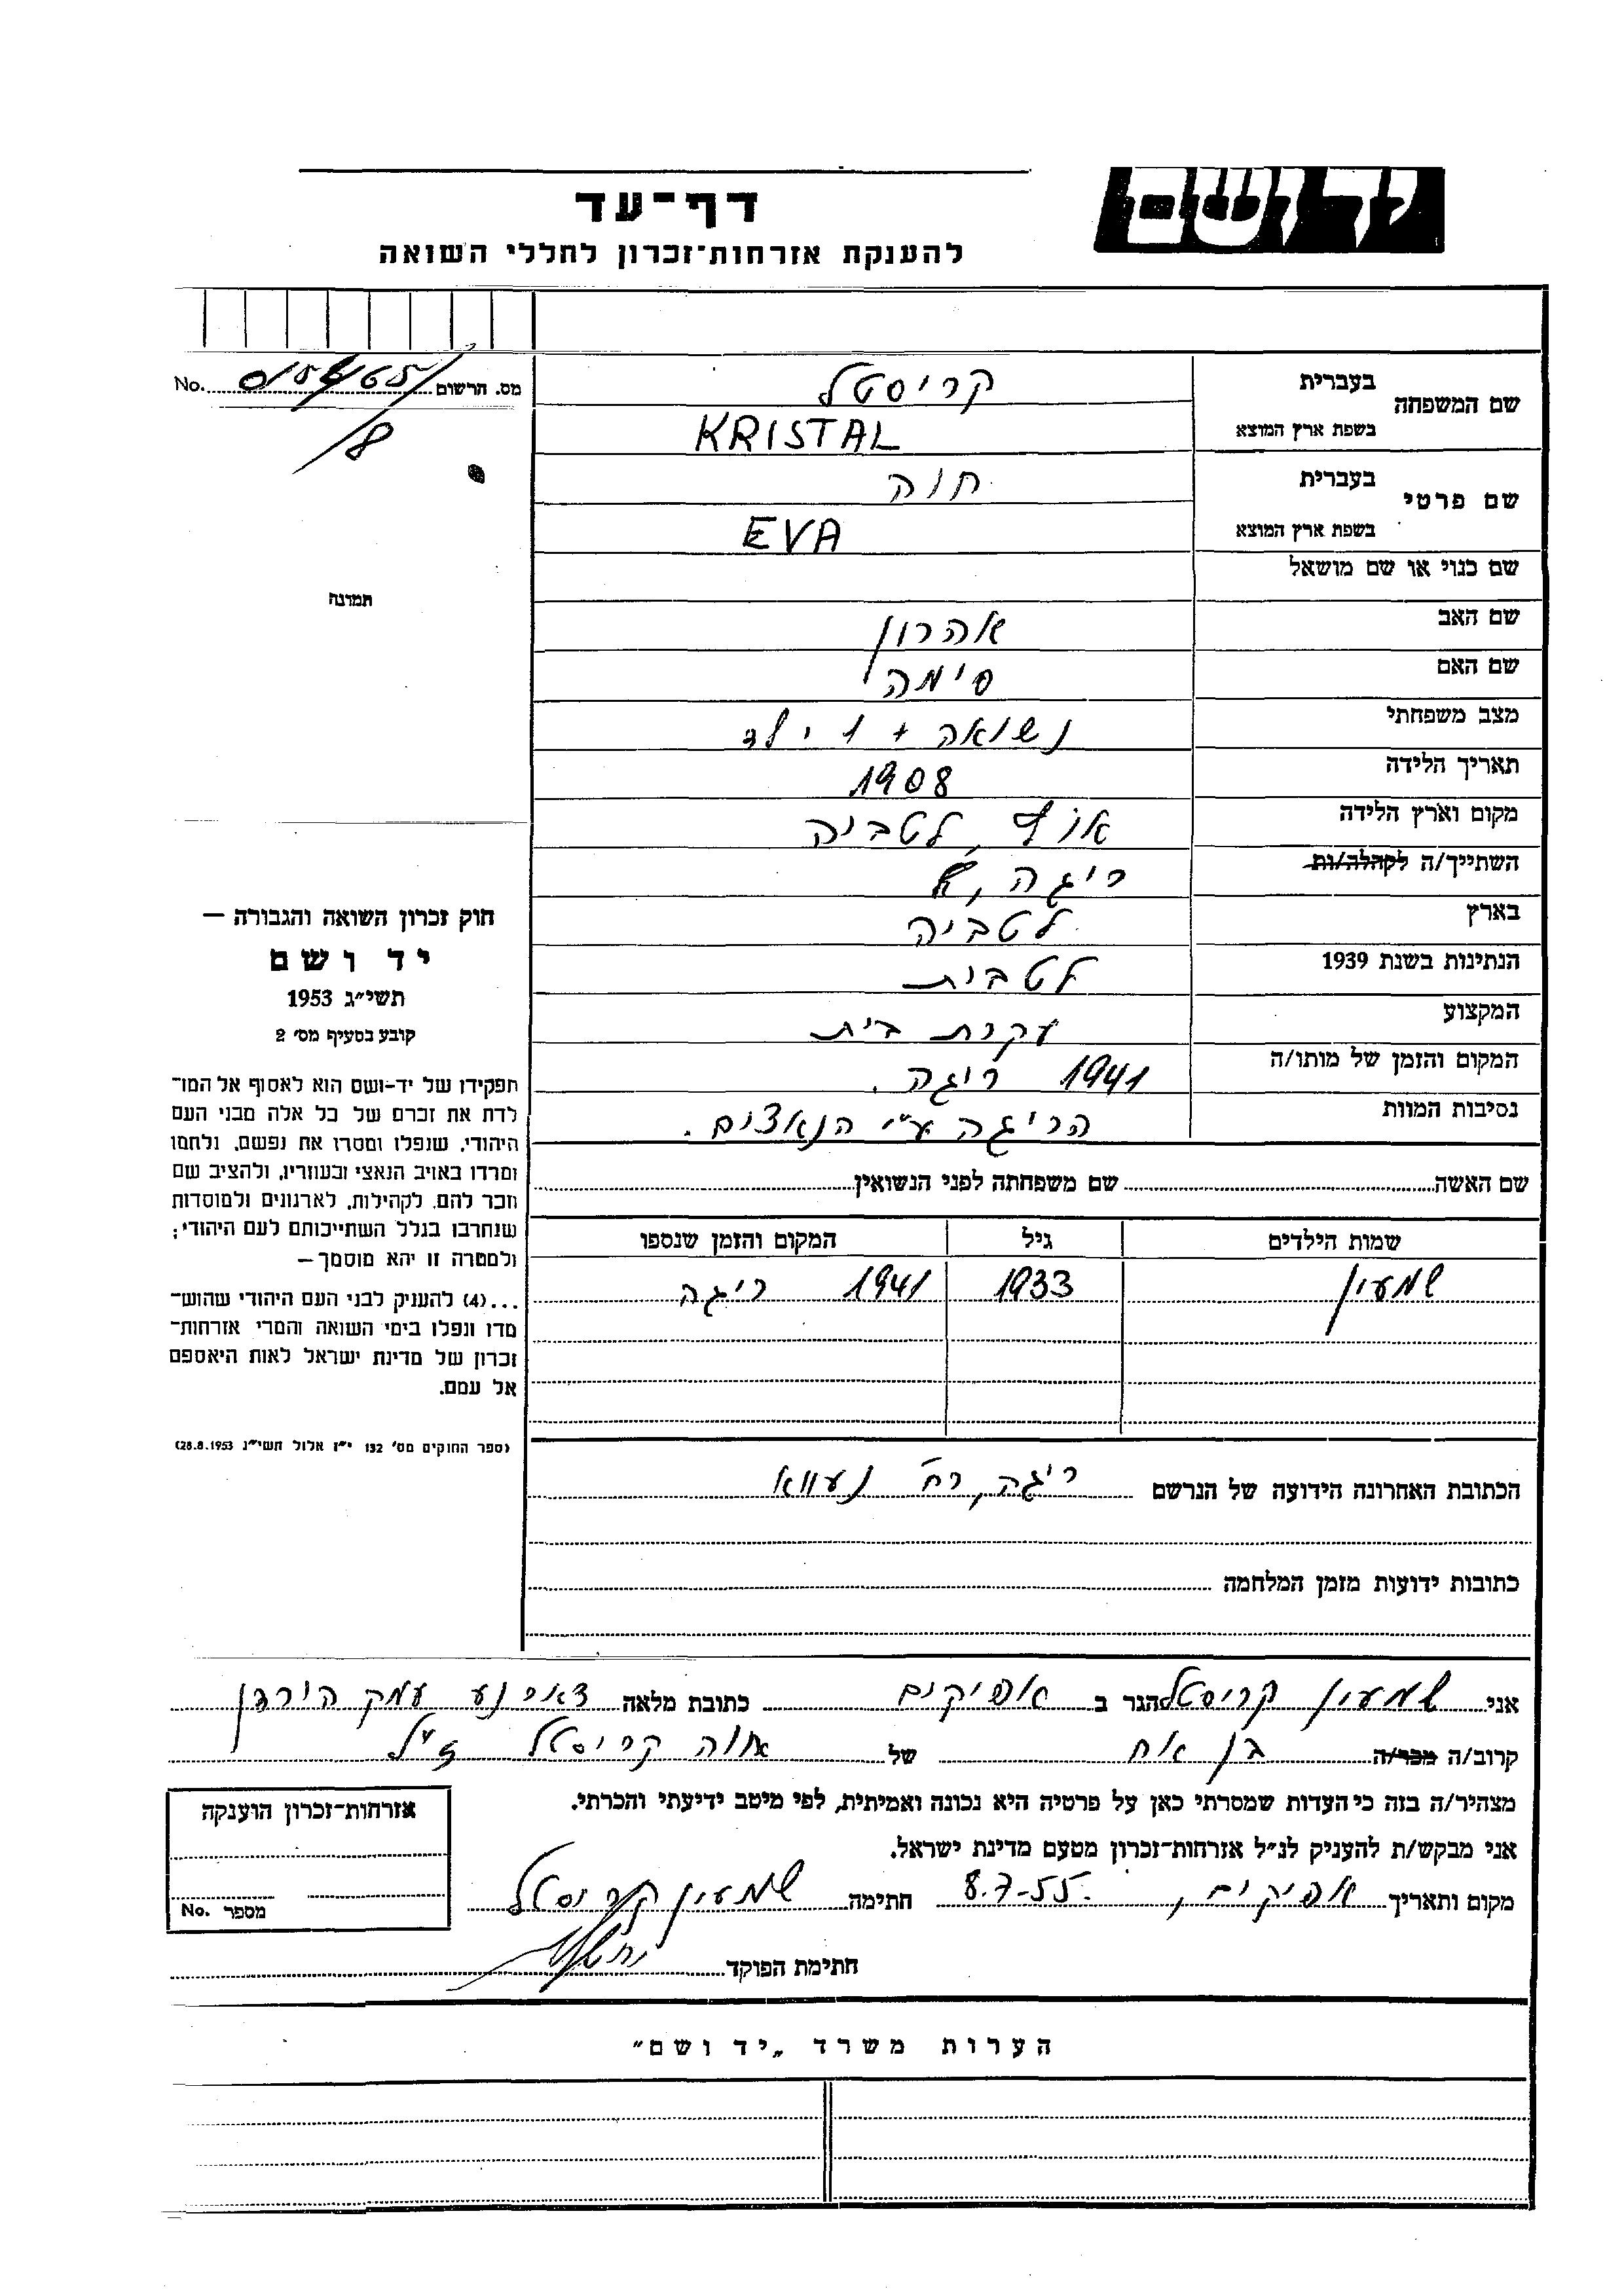 יד ושם
דף-עד
להענקת אזרחות-זכרון לחללי השואה
מס. הרשום No.
שם המשפחה בעברית קריסטל
בשפת ארץ המוצא KRISTAL
שם פרטי בעברית חוה
בשפת ארץ המוצא EVA
שם כנוי או שם מושאל
שם האב אהרון
שם האם סימה
מצב משפחתי נשואה + 1 ילד
תאריך הלידה 1908
מקום וארץ הלידה לטביה
השתייך/ה לקהלה/ות ריגה,
בארץ לטביה
הנתינות בשנת 1939 לטבית
המקצוע עקרת בית
המקום והזמן של מותו/ה 1941 ריגה.
נסיבות המוות הריגה ע"י הנאצים.
שם האשה שם משפחתה לפני הנשואין
שמות הילדים גיל המקום והזמן שנספו
שמעון 1933 1941 ריגה
הכתובת האחרונה הידועה של הנרשם ריגה, רח' נעווא
כתובות ידועות מזמן המלחמה
תמונה
חוק זכרון השואה והגבורה –
יד ושם
תשי"ג 1953
קובע בסעיף מס' 2
תפקידו של יד-ושם הוא לאסוף אל המו-
לדת את זכרם של כל אלה מבני העם
היהודי, שנפלו ומסרו את נפשם, נלחמו
ומרדו באויב הנאצי ובעוזריו, ולהציב שם
וזכר להם, לקהילות, לארגונים ולמוסדות
שנחרבו בגלל השתייכותם לעם היהודי;
ולמטרה זו יהא מוסמך –
...(4) להעניק לבני העם היהודי שהוש-
מדו ונפלו בימי השואה והמרי אזרחות-
זכרון של מדינת ישראל לאות היאספם
אל עמם.
(ספר החוקים מס' 132 י"ז אלול תשי"ג 28.8.1953)
אני שמעון קריסטל הגר ב אפיקים כתובת מלאה ד.אר נע עמק הירדן
קרוב/ה מכר/ה בן אח של חוה קריסטל ז"ל
מצהיר/ה בזה כי העדות שמסרתי כאן על פרטיה היא נכונה ואמיתית, לפי מיטב ידיעתי והכרתי.
אני מבקש/ת להעניק לנ"ל אזרחות-זכרון מטעם מדינת ישראל.
מקום ותאריך אפיקים, 8.7-55 חתימה שמעון קריסטל
חתימת הפוקד
אזרחות-זכרון הוענקה
מספר No.
הערות משרד „יד ושם"